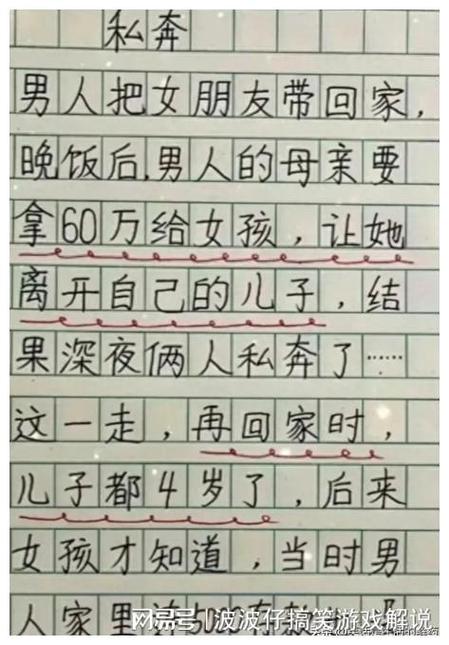 私奔
男人把女朋友带回家，
晚饭后，男人的母亲要
拿60万给女孩，让她
离开自己的儿子，结
果深夜俩人私奔了……
这一走，再回家时，
儿子都4岁了，后来
女孩才知道，当时男
人家里
网易号|波波仔搞笑游戏解说